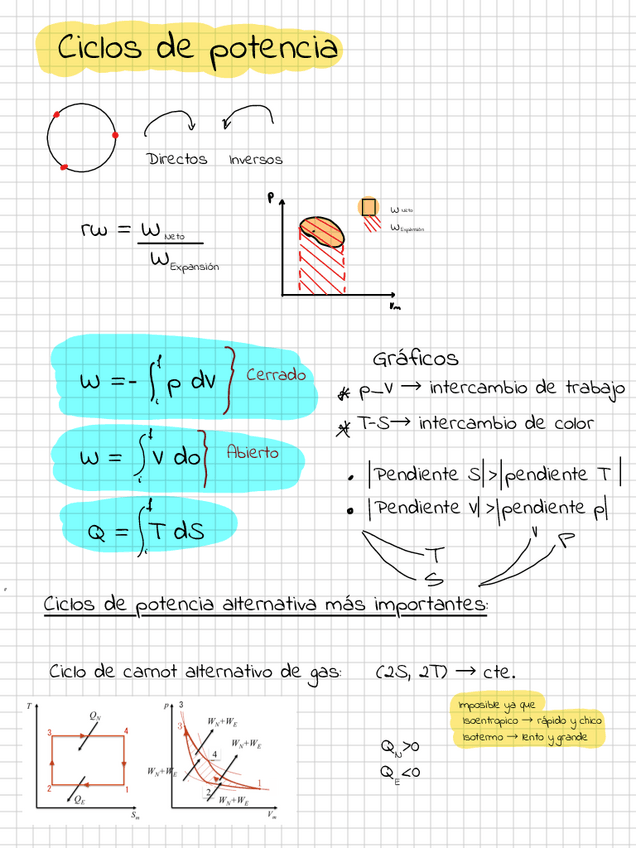 Ciclos de potencia
Directos Inversos
rw = W Neto
W Expansión
P
W Neto
W Expansión
Vm
W = - ∫ᵢᶠ p dv } Cerrado
W = ∫ᵢᶠ V do } Abierto
Q = ∫ᵢᶠ T dS
Gráficos
* p_V → intercambio de trabajo
* T-S → intercambio de color
• |Pendiente S| > |pendiente T|
• |Pendiente V| > |pendiente p|
T
S
V
P
Ciclos de potencia alternativa más importantes:
Ciclo de carnot alternativo de gas: (2S, 2T) → cte.
Imposible ya que
Isoentropico → rápido y chico
Isotermo → lento y grande
Q N >0
Q E <0
T
Q_N
3 4
2 1
Q_E
S_m
P
3
3
W_N+W_E
4
W_N+W_E
W_N+W_E
2
1
W_N+W_E
V_m